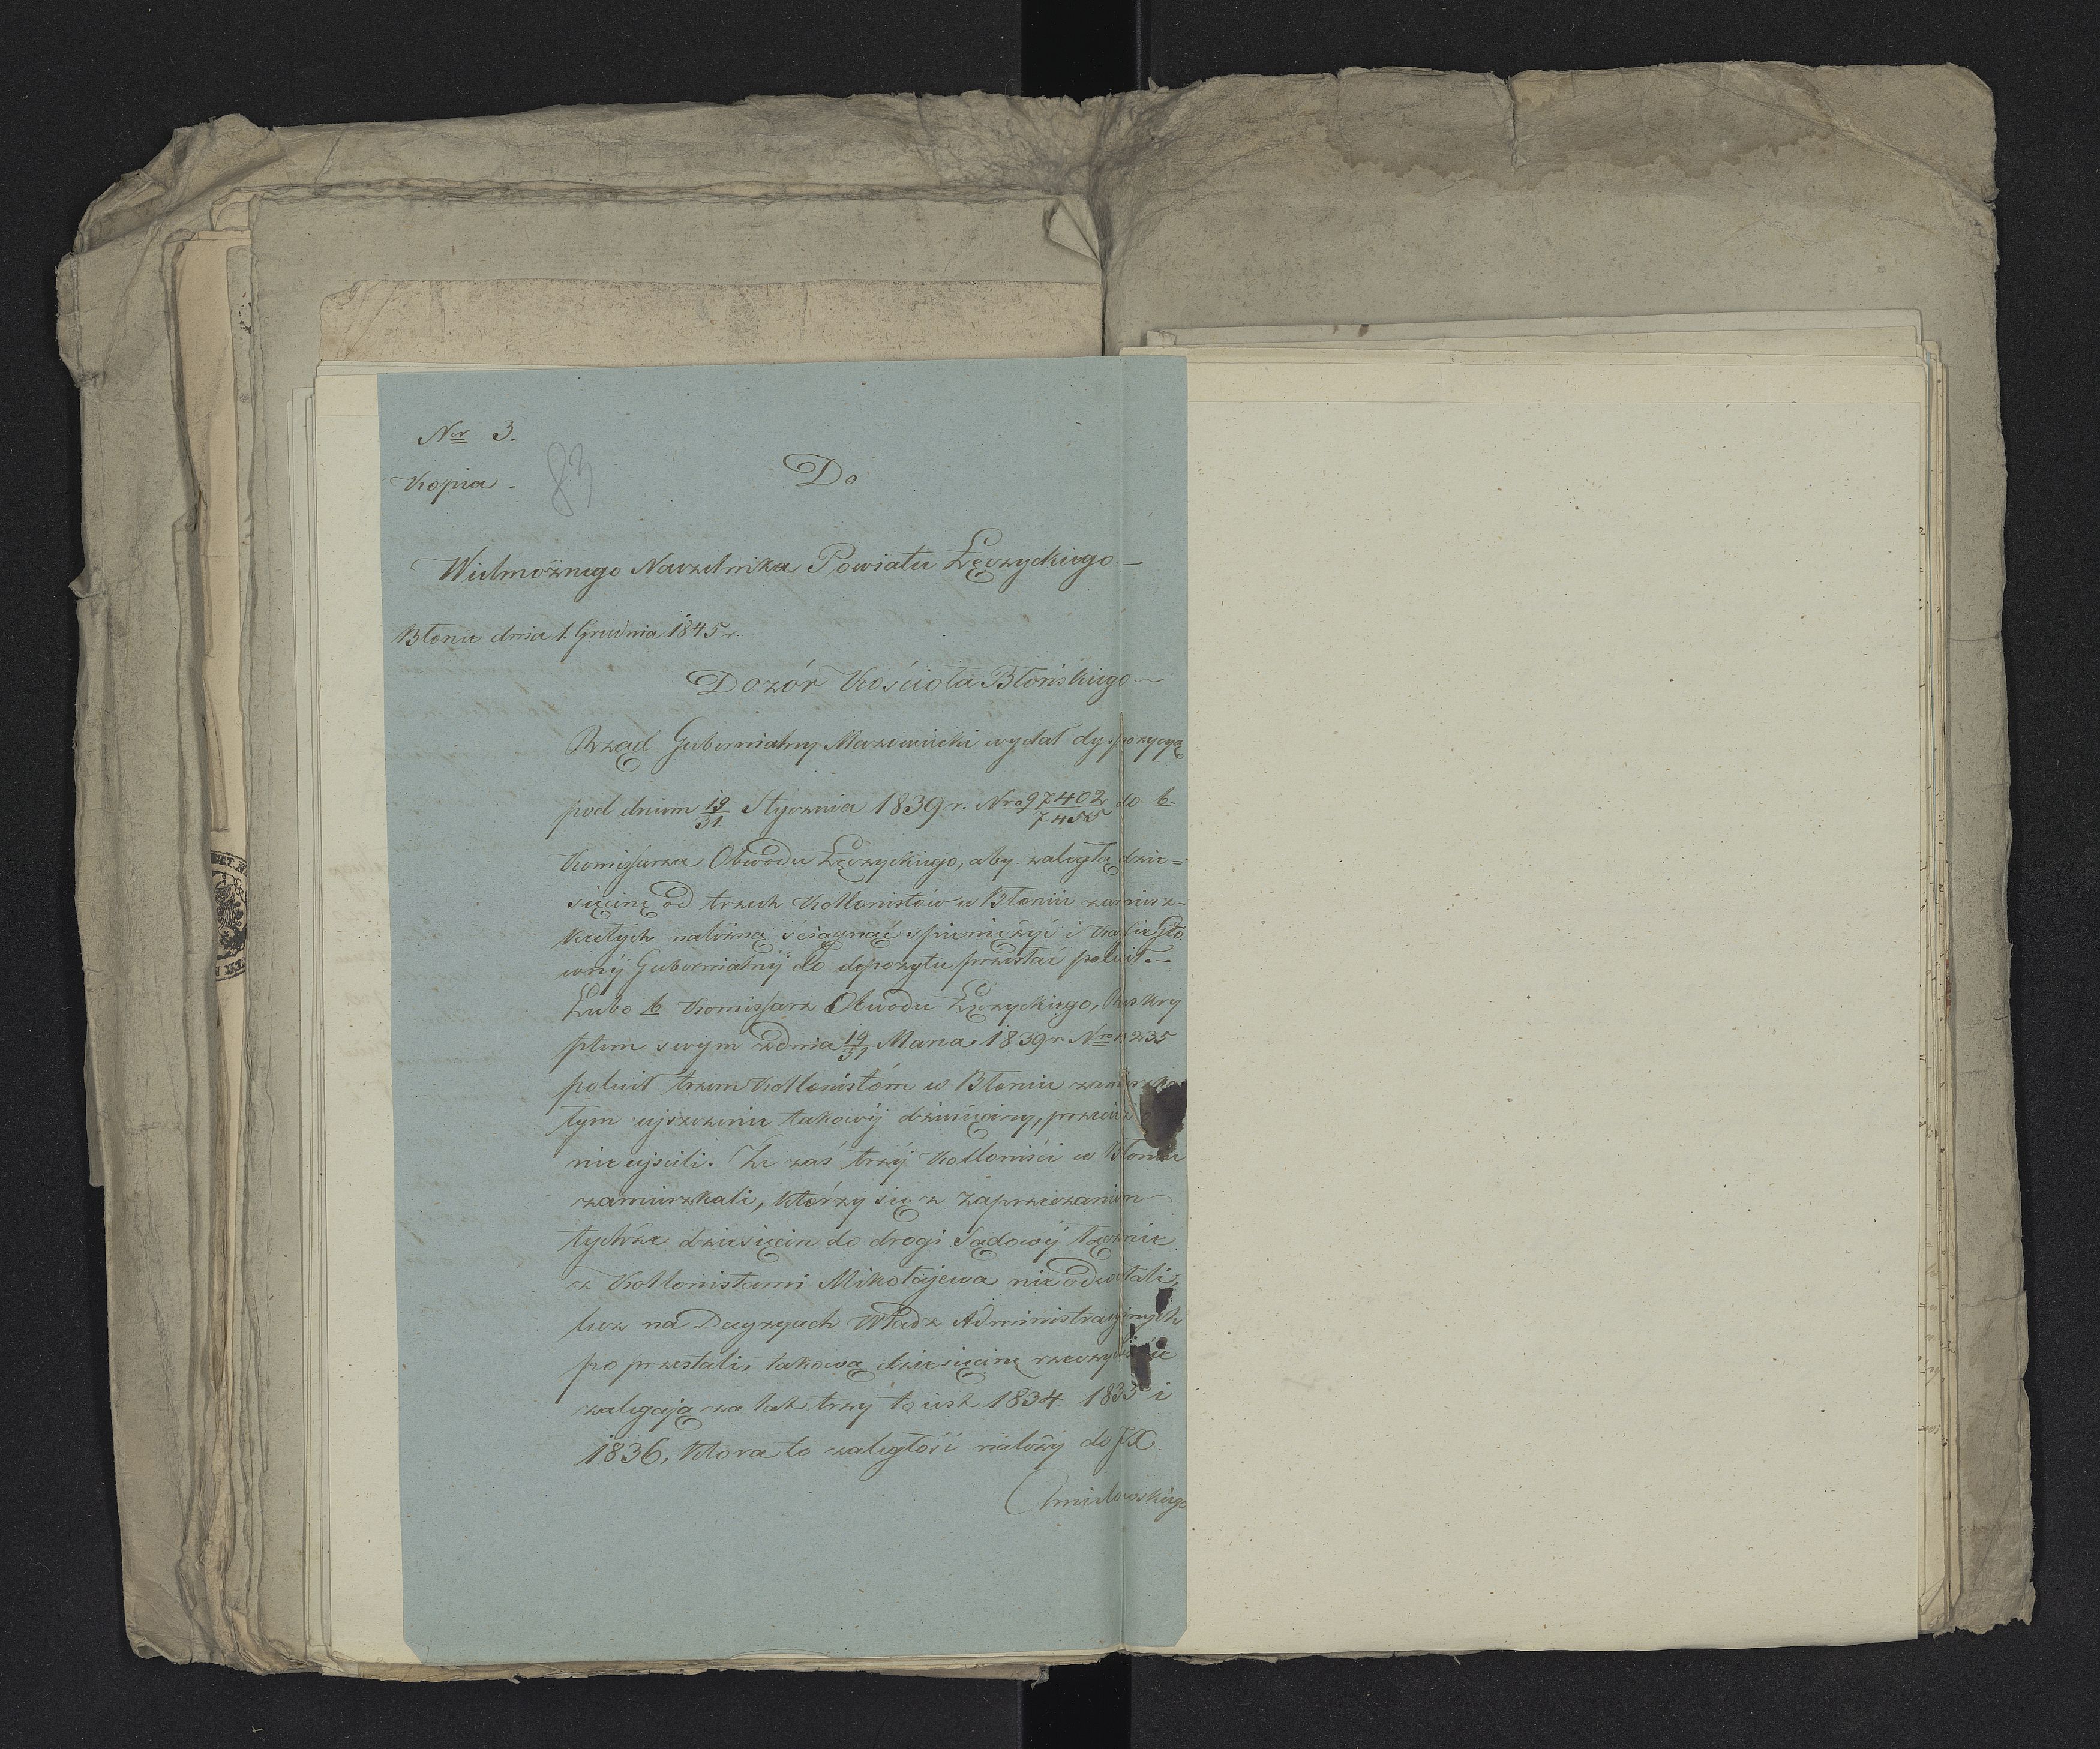 Nr 3.
Kopia -
83
Do
Wielmożnego Naczelnika Powiatu Łęczyckiego -
Błonie dnia 1. Grudnia 1845 r.
Dozór Kościoła Błońskiego -
Rząd Gubernialny Mazowiecki wydał dyspozycyą
pod dniem 19/31 Stycznia 1839 r. Nro 97402/7455 do b.
Komissarza Obwodu Łęczyckiego, aby zaległą dzie=
sięcinę od trzech Kollonistów w Błoniu zamiesz-
kałych należną ściągnąć spieniężyć i Kassie Głó
wnéj Gubernialnéj do depozytu przesłać polecił. -
Lubo b. Komissarz Obwodu Łęczyckiego, Reskry
ptem swym z dnia 19/31 Marca 1839 r. Nro 4235
polecił trzem Kollonistóm w Błoniu zamieszka
łym ujszczenie takowéj dziesięciny, przecież
nie ujścili. Że zaś trzéj Kolloniści w Błoniu
zamieszkali, którzy się z zaprzeczaniem
tychże dziesięcin do drogi Sądowéj łącznie
z Kollonistami Mikołajewa nie odwołali,
lecz na Decyzyach Władz Administracyjnych
poprzestali, takową dziesięcinę rzeczywiście
zalegają za lat trzy to iest 1834 1835 i
1836, która to zaległość należy do JX.
Chmielewskiego